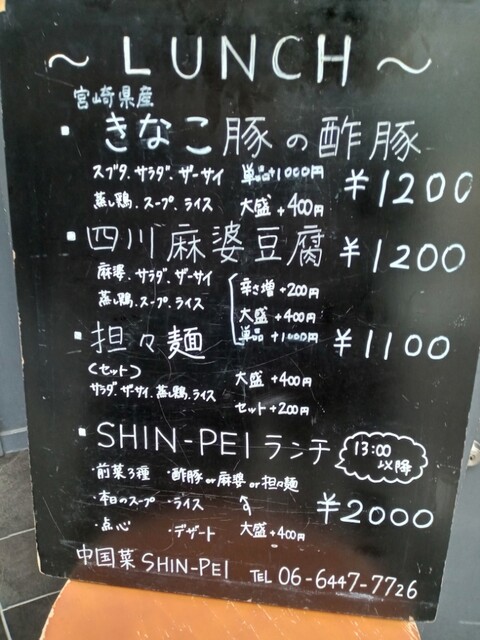 ～ LUNCH ～
宮崎県産
・きなこ豚の酢豚 ¥1200
スブタ、サラダ、ザーサイ 単品+1000円
蒸し鶏、スープ、ライス 大盛+400円
・四川麻婆豆腐 ¥1200
麻婆、サラダ、ザーサイ 辛さ増+200円
蒸し鶏、スープ、ライス 大盛+400円
単品+1000円
・担々麺 ¥1100
〈セット〉 大盛+400円
サラダ、ザーサイ、蒸し鶏、ライス セット+200円
・SHIN-PEIランチ 13:00以降
・前菜3種 ・酢豚or麻婆or担々麺 ¥2000
・本日のスープ ・ライス
・点心 ・デザート 大盛+400円
中国菜 SHIN-PEI TEL 06-6447-7726